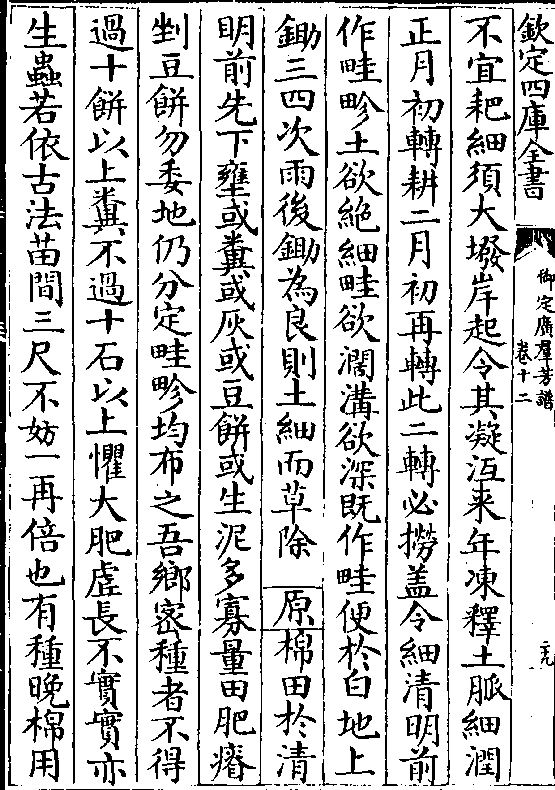 欽定四庫全書
御定廣羣芳譜
卷十二
不宜耙細須大墢岸起令其凝沍来年凍釋土脈細潤
正月初轉耕二月初再轉此二轉必撈盖令細清明前
作畦畛土欲絶細畦欲濶溝欲深既作畦便於白地上
鋤三四次雨後鋤為良則土細而草除 原棉田於清
明前先下壅或糞或灰或豆餅或生泥多寡量田肥瘠
剉豆餅勿委地仍分定畦畛均布之吾鄉密種者不得
過十餅以上糞不過十石以上懼大肥虛長不實實亦
生蟲若依古法苗間三尺不妨一再倍也有種晚棉用